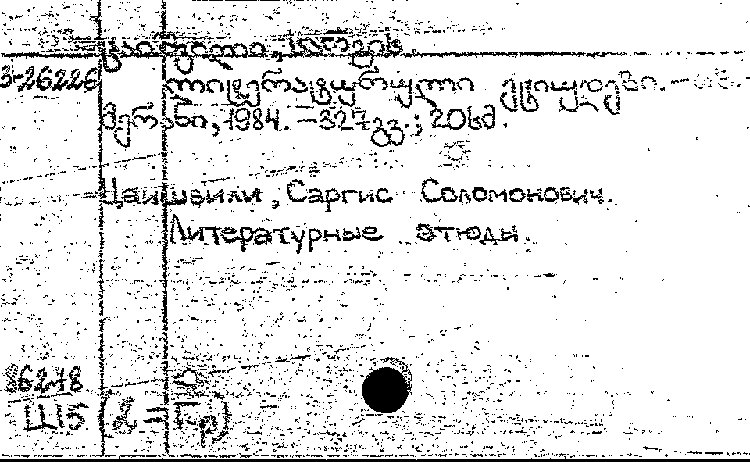 ცაიშვილი, სარგის.
3-26226 ლიტერატურული ეტიუდები. – თბ.
მერანი, 1984. – 327 გვ.; 20 სმ.
Цаишвили, Саргис Соломонович.
Литературные этюды.
86278
Ш5 (2=Гр)